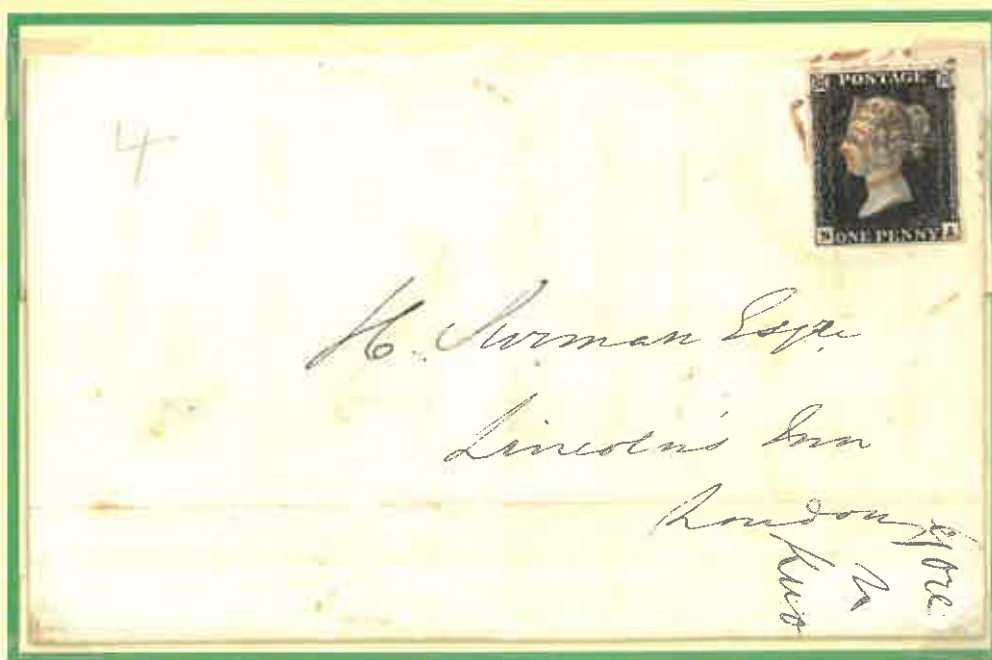 4
POSTAGE
N ONE PENNY A
H. Surman Esqre
Lincoln's Inn
London
Gore